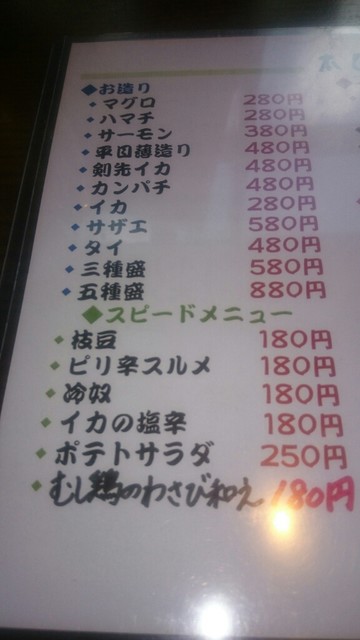 ◆お造り
◆マグロ 280円
◆ハマチ 280円
◆サーモン 380円
◆平目薄造り 480円
◆剣先イカ 480円
◆カンパチ 480円
◆イカ 280円
◆サザエ 580円
◆タイ 480円
◆三種盛 580円
◆五種盛 880円
◆スピードメニュー
◆枝豆 180円
◆ピリ辛スルメ 180円
◆冷奴 180円
◆イカの塩辛 180円
◆ポテトサラダ 250円
◆むし鶏のわさび和え 180円